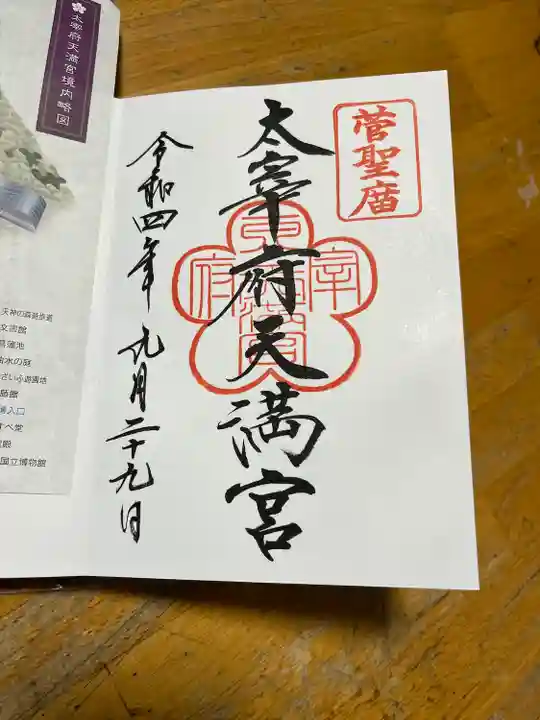 菅聖庿
太宰府天満宮
令和四年 九月二十九日
太宰府天満宮境内略図
天神の森遊歩道
文書館
蒲池
水の庭
ざいふ遊園地
館
入口
すべ堂
殿
国立博物館